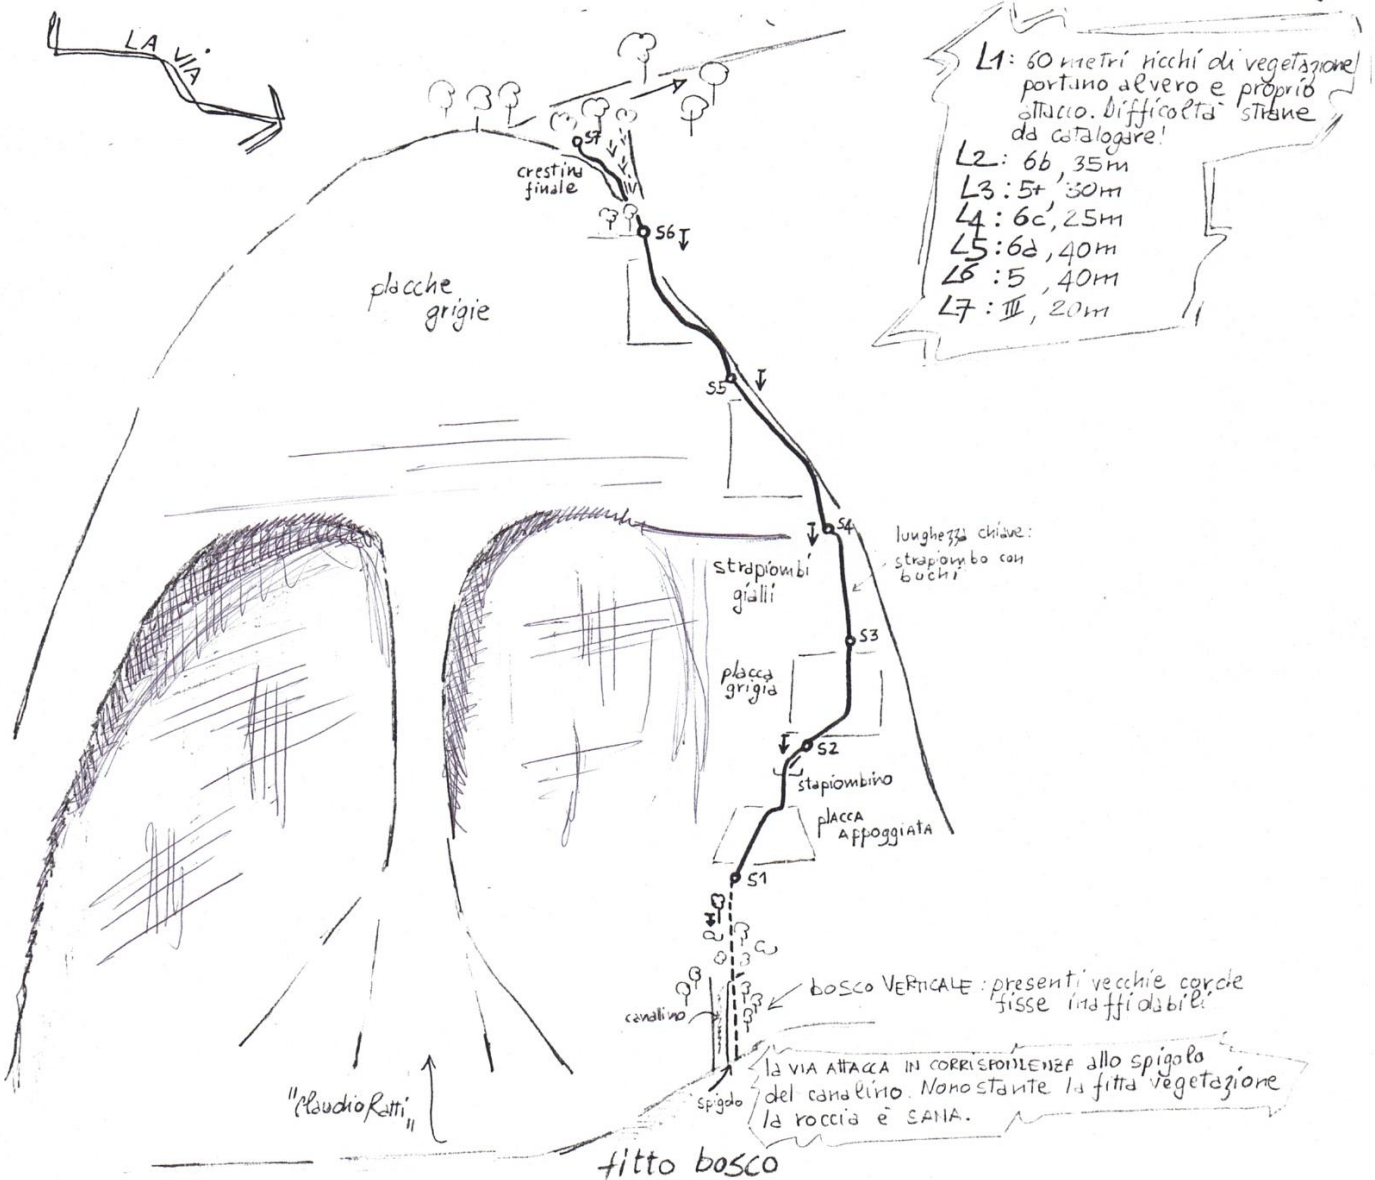 LA VIA
L1: 60 metri ricchi di vegetazione
portano al vero e proprio
attacco. Difficoltà strane
da catalogare!
L2: 6b, 35m
L3: 5+, 30m
L4: 6c, 25m
L5: 6a, 40m
L6: 5, 40m
L7: III, 20m
S7
crestina
finale
S6
placche
grigie
S5
S4
lunghezza chiave:
strapiombo con
buchi
strapiombi
gialli
S3
placca
grigia
S2
stapiombino
placca
appoggiata
S1
bosco VERTICALE: presenti vecchie corde
fisse inaffidabili
canalino
la VIA ATTACCA IN CORRISPONDENZA allo spigolo
del canalino. Nonostante la fitta vegetazione
la roccia è SANA.
spigolo
"Claudio Ratti"
fitto bosco